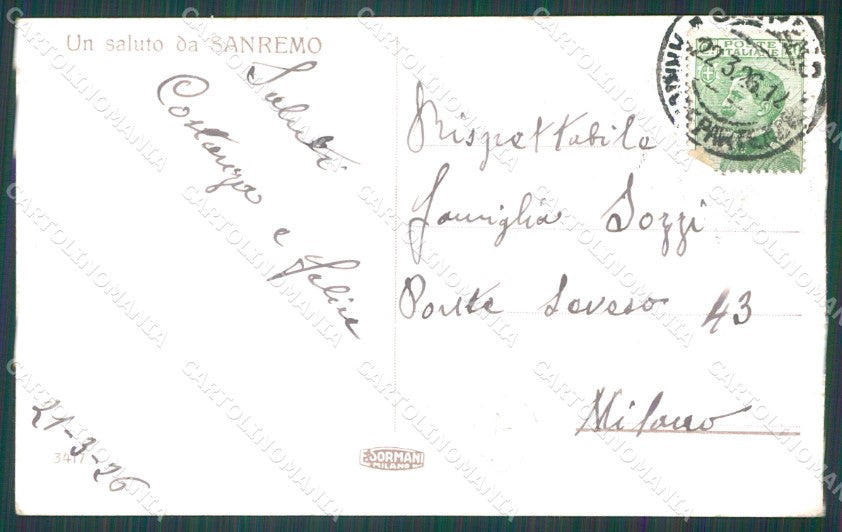 Un saluto da SANREMO
Saluti
Costanza e Felice
21-3-26
3417
E. SORMANI
MILANO
POSTE
ITALIANE
22.3.26.12
PARTENZA
Rispettabile
Famiglia Sozzi
Ponte Seveso 43
Milano
CARTOLINOMANIA